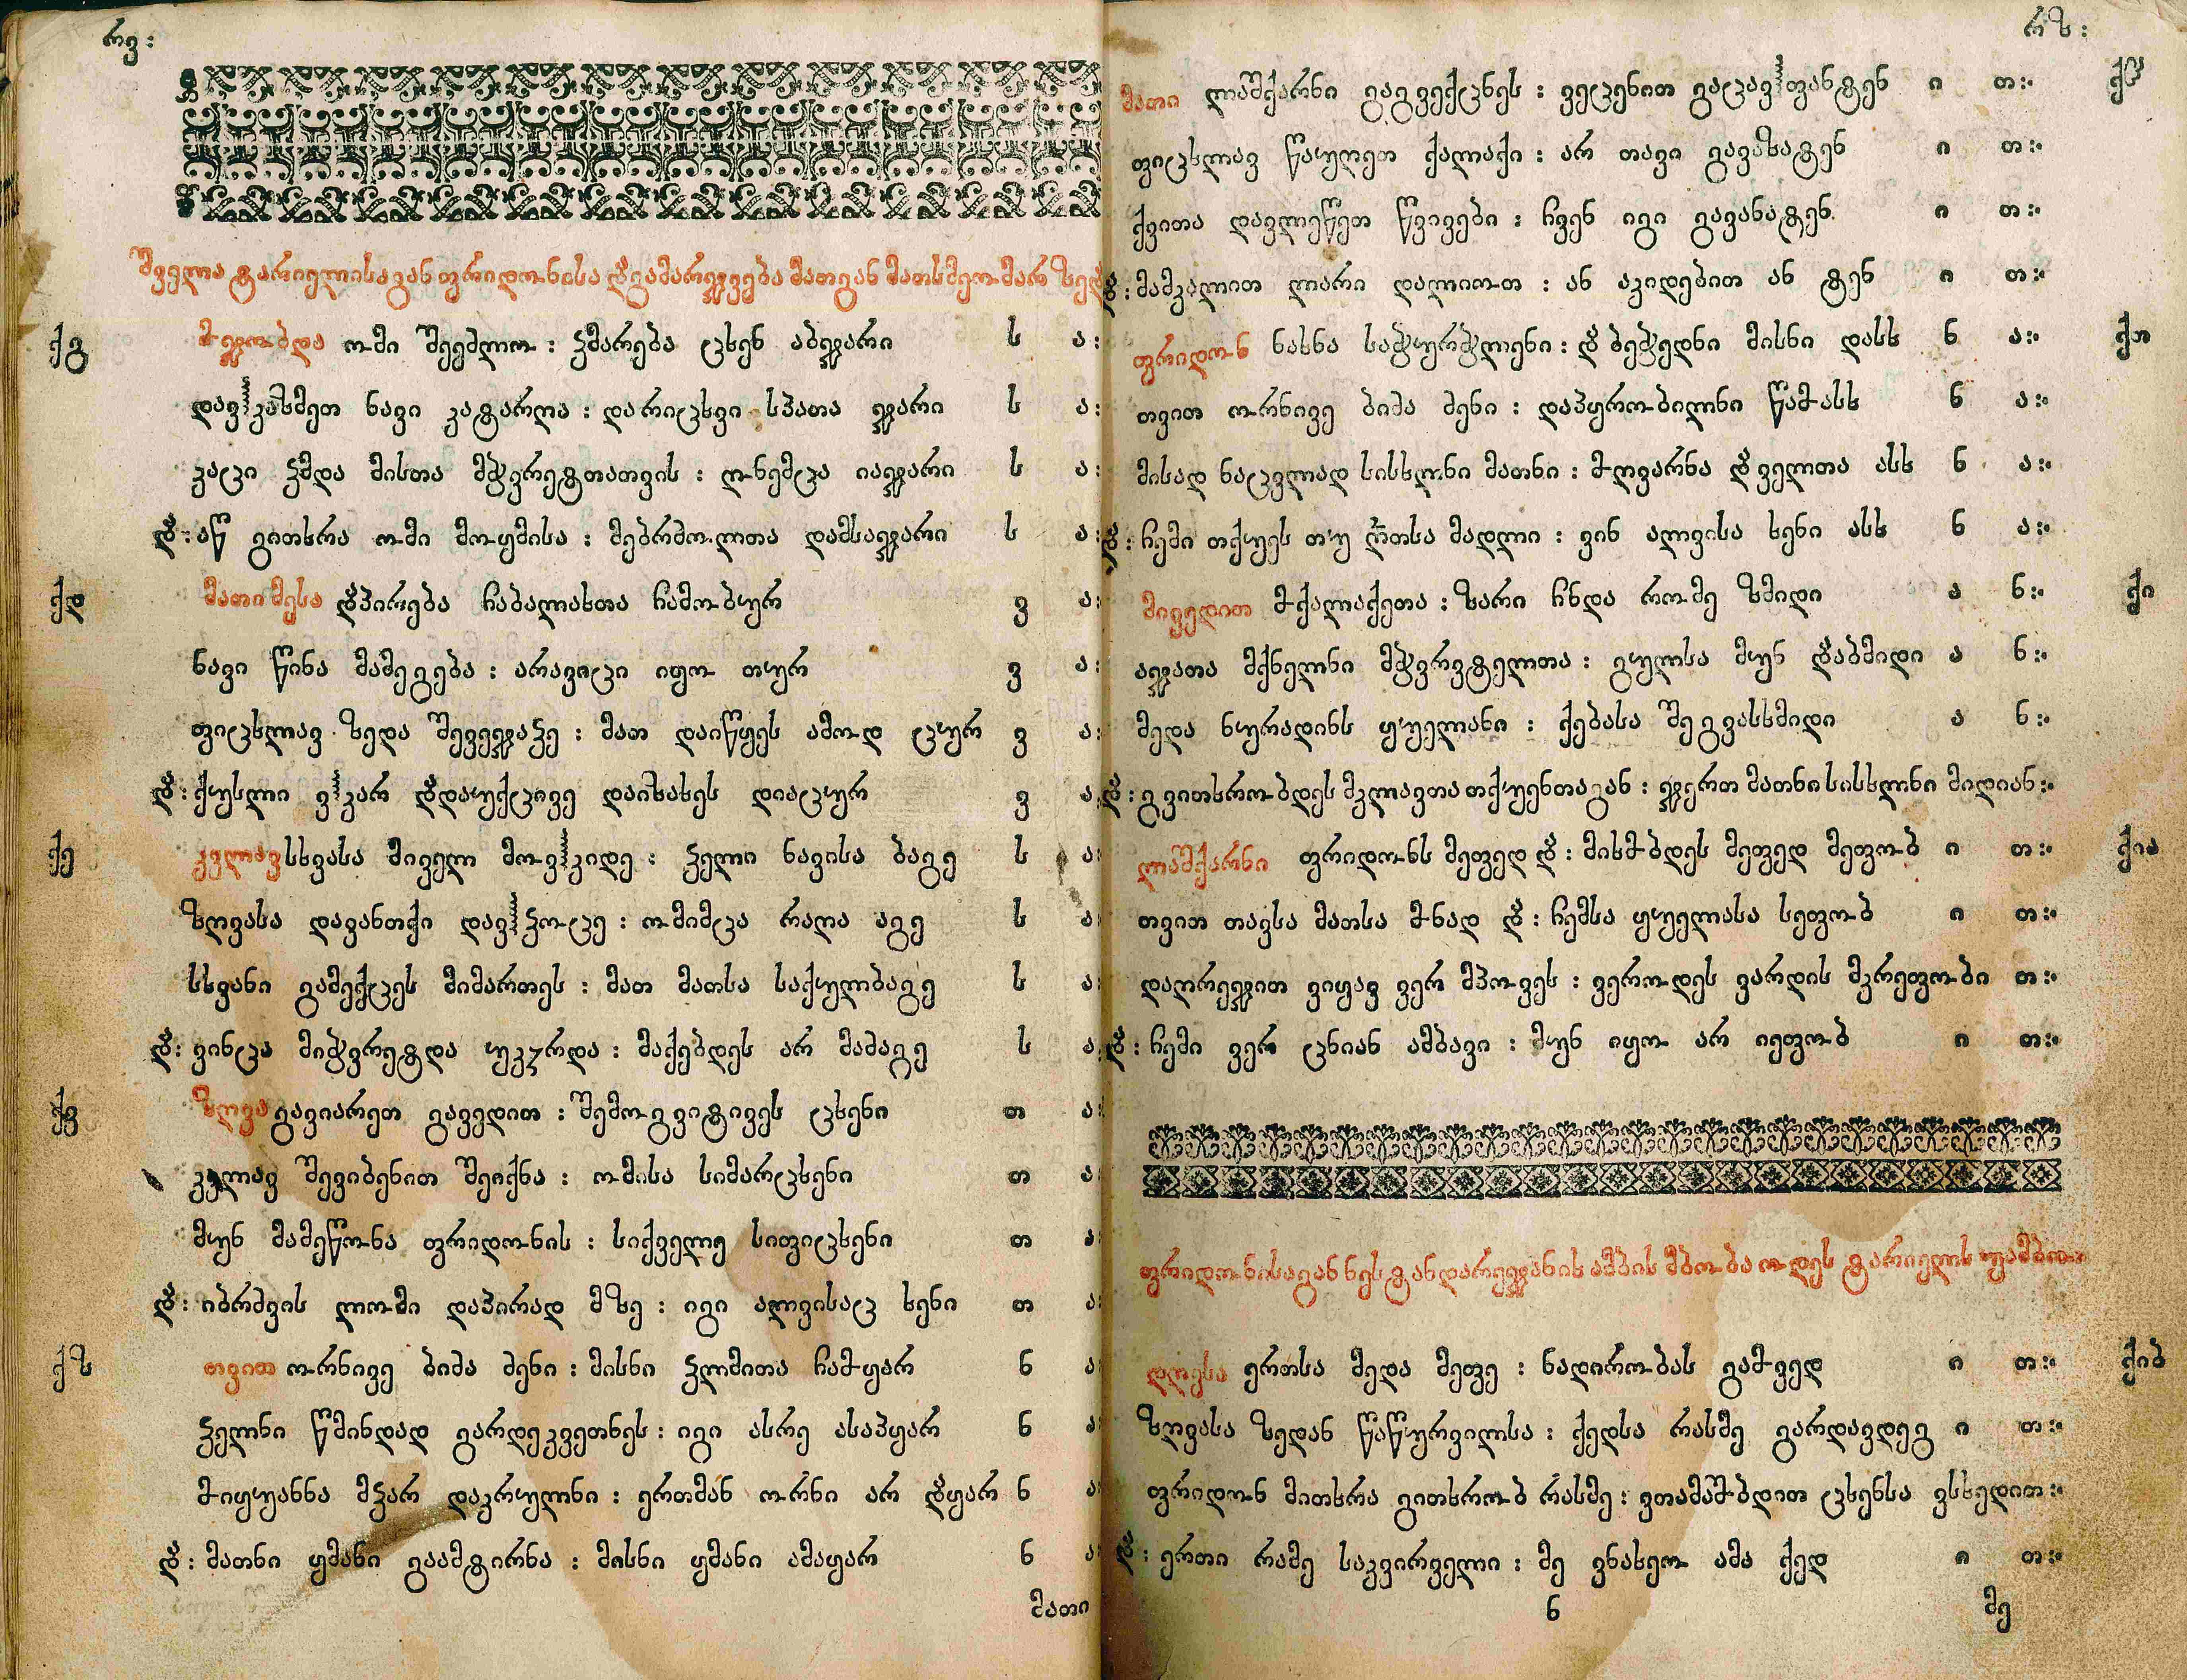 რვ:
შველა ტარიელისაგან ფრიდონისა და გამარჯვება მათგან მათსმეომარ ზედა
ქგ მეჯობდა ომი შეეძლო : ჴმარება ცხენ აბჯარი ს ა:
დავჰკაზმეთ ნავი კატარღა : დარიცხვი სპათა ჯარი ს ა:
კაცი ჴმდა მისთა მჭვრეტთათვის : ღონემცა იაჯარი ს ა:
და: აწ გითხრა ომი მოყმისა : მებრძოლთა დამსაჯარი ს ა:
ქდ მათი მესა და პირება ჩაბალახთა ჩამობურ ვ ა:
ნავი წინა მამეგება : არავიცი იყო თურ ვ ა:
ფიცხლავ ზედა შევეჯახე : მათ დაიწყეს ამოდ ცურ ვ ა:
და: ქუსლი ვჰკარ და დაუქცივე დაიზახეს დიაცურ ვ ა:
ქე კვლავ სხვასა მიველ მოვჰკიდე : ჴელი ნავისა ბაგე ს ა:
ზღვასა დავანთქი დავჰჴოცე : ომიმცა რაღა აგე ს ა:
სხვანი გამექცეს მიმართეს : მათ მათსა საქულბაგე ს ა:
და: ვინცა მიჭვრეტდა უკჳრდა : მაქებდეს არ მაძაგე ს ა:
ქვ ზღვა გავიარეთ გავედით : შემოგვიტივეს ცხენი თ ა:
კვლავ შევიბენით შეიქნა : ომისა სიმარცხენი თ ა:
მუნ მამეწონა ფრიდონის : სიქველე სიფიცხენი თ ა:
და: იბრძვის ლომი დაპირად მზე : იგი ალვისაც ხენი თ ა:
ქზ თვით ორნივე ბიძა ძენი : მისნი ჴლმითა ჩამოყარ ნ ა:
ჴელნი წმინდად გარდეკვეთნეს : იგი ასრე ასაპყარ ნ ა:
მოიყუანნა მჴარ დაკრულნი : ერთმან ორნი არ დაყარ ნ ა:
და: მათნი ყმანი გაამტირნა : მისნი ყმანი ამაყარ ნ ა:
მათი
რზ:
მათი ლაშქარნი გაგვექცნეს : ვეცენით გაცავჰფანტენ ი თ: ქჱ
ფიცხლავ წაუღეთ ქალაქი : არ თავი გავანატენ ი თ:
ქვითა დავლეწეთ წვივები : ჩვენ იგი გავანატენ ი თ:
და: მამკალით ლარი დალიოთ : ან აკიდებით ან ტენ ი თ:
ფრიდონ ნახნა საჭურჭლენი : და ბეჭედნი მისნი დასხ ნ ა: ქთ
თვით ორნივე ბიძა ძენი : დაპყრობილნი წამოასხ ნ ა:
მისად ნაცვლად სისხლნი მათნი : მოღვარნა და ველთა ასხ ნ ა:
და: ჩემი თქუეს თუ ღთსა მადლი : ვინ ალვისა ხენი ასხ ნ ა:
მივედით მოქალაქეთა : ზარი ჩნდა რომე ზმიდი ა ნ: ქი
აჯათა მქნელნი მჭვრვტელთა : გულსა მუნ დააბმიდი ა ნ:
მედა ნურადინს ყუელანი : ქებასა შეგვასხმიდი ა ნ:
და: გვითხრობდეს მკლავთა თქუენთაგან : ჯერთ მათნი სისხლნი მიდიან:
ლაშქარნი ფრიდონს მეფედ და: მისმობდეს მეფედ მეფობ ი თ: ქია
თვით თავსა მათსა მონად და: ჩემსა ყუელასა სეფობ ი თ:
დაღრეჯით ვიყავ ვერ მპოვეს : ვეროდეს ვარდის მკრეფობი თ:
და: ჩემი ვერ ცნიან ამბავი : მუნ იყო არ იეფობ ი თ:
ფრიდონისაგან ნესტანდარეჯანის ამბის მბობა ოდეს ტარიელს უამბო
დღესა ერთსა მედა მეფე : ნადირობას გამოვედ ი თ: ქიბ
ზღვასა ზედან წაწურვილსა : ქედსა რასმე გარდავდეგ ი თ:
ფრიდონ მითხრა გითხრობ რასმე : ვთამაშობდით ცხენსა ვსხედით:
და: ერთი რამე საკვირველი : მე ვნახეო ამა ქედ ი თ:
ნ მე